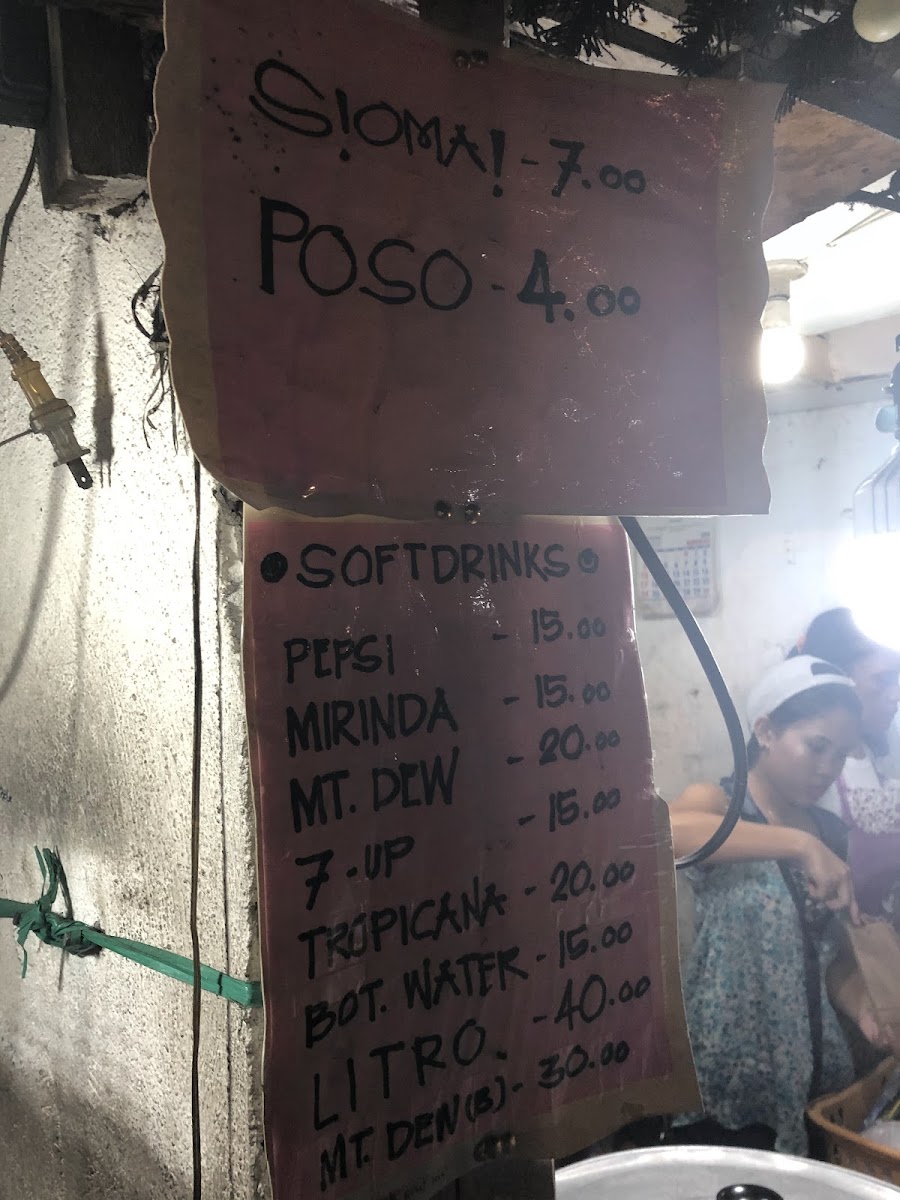 SIOMAI - 7.00
POSO - 4.00
• SOFTDRINKS •
PEPSI - 15.00
MIRINDA - 15.00
MT. DEW - 20.00
7-UP - 15.00
TROPICANA - 20.00
BOT. WATER - 15.00
LITRO. - 40.00
MT. DEN (B) - 30.00